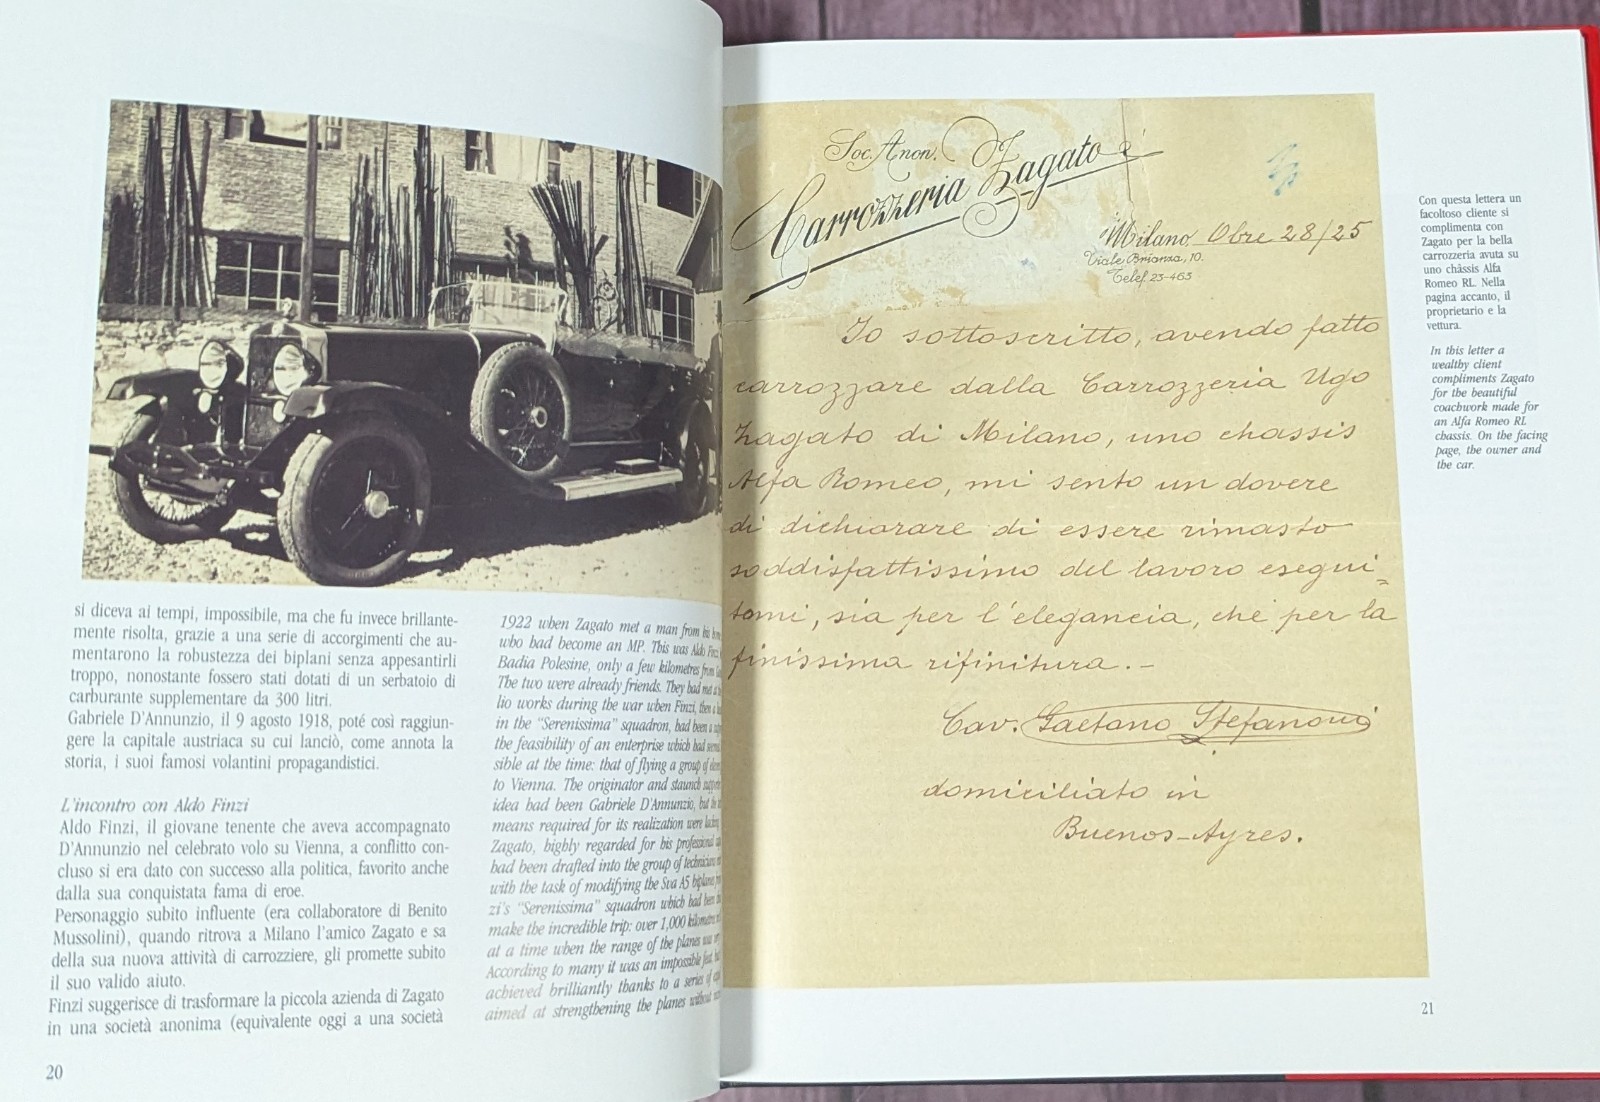 si diceva ai tempi, impossibile, ma che fu invece brillante-
mente risolta, grazie a una serie di accorgimenti che au-
mentarono la robustezza dei biplani senza appesantirli
troppo, nonostante fossero stati dotati di un serbatoio di
carburante supplementare da 300 litri.
Gabriele D'Annunzio, il 9 agosto 1918, poté così raggiun-
gere la capitale austriaca su cui lanciò, come annota la
storia, i suoi famosi volantini propagandistici.
L'incontro con Aldo Finzi
Aldo Finzi, il giovane tenente che aveva accompagnato
D'Annunzio nel celebrato volo su Vienna, a conflitto con-
cluso si era dato con successo alla politica, favorito anche
dalla sua conquistata fama di eroe.
Personaggio subito influente (era collaboratore di Benito
Mussolini), quando ritrova a Milano l'amico Zagato e sa
della sua nuova attività di carrozziere, gli promette subito
il suo valido aiuto.
Finzi suggerisce di trasformare la piccola azienda di Zagato
in una società anonima (equivalente oggi a una società
20
1922 when Zagato met a man from his
who had become an MP. This was Aldo Finzi
Badia Polesine, only a few kilometres from
The two were already friends. They had met
lio works during the war when Finzi, then a
in the "Serenissima" squadron, had been a
the feasibility of an enterprise which had
sible at the time: that of flying a group of
to Vienna. The originator and staunch
idea had been Gabriele D'Annunzio, but the
means required for its realization were lacking.
Zagato, highly regarded for his professional
had been drafted into the group of technicians
with the task of modifying the Sva A5 biplanes
zi's "Serenissima" squadron which had been
make the incredible trip: over 1,000 kilometres
at a time when the range of the planes was
According to many it was an impossible feat, but
achieved brilliantly thanks to a series of
aimed at strengthening the planes without
Soc. Anon.
Carrozzeria Zagato
Milano, Obre 28/25
Viale Brianza, 10.
Telef. 23-463
Io sottoscritto, avendo fatto
carrozzare dalla Carrozzeria Ugo
Zagato di Milano, uno chassis
Alfa Romeo, mi sento un dovere
di dichiarare di essere rimasto
soddisfattissimo del lavoro esegui=
tomi, sia per l'elegancia, che per la
finissima rifinitura. -
Cav. Gaetano Stefanoni
domiciliato in
Buenos-Ayres.
Con questa lettera un
facoltoso cliente si
complimenta con
Zagato per la bella
carrozzeria avuta su
uno châssis Alfa
Romeo RL. Nella
pagina accanto, il
proprietario e la
vettura.
In this letter a
wealthy client
compliments Zagato
for the beautiful
coachwork made for
an Alfa Romeo RL
chassis. On the facing
page, the owner and
the car.
21